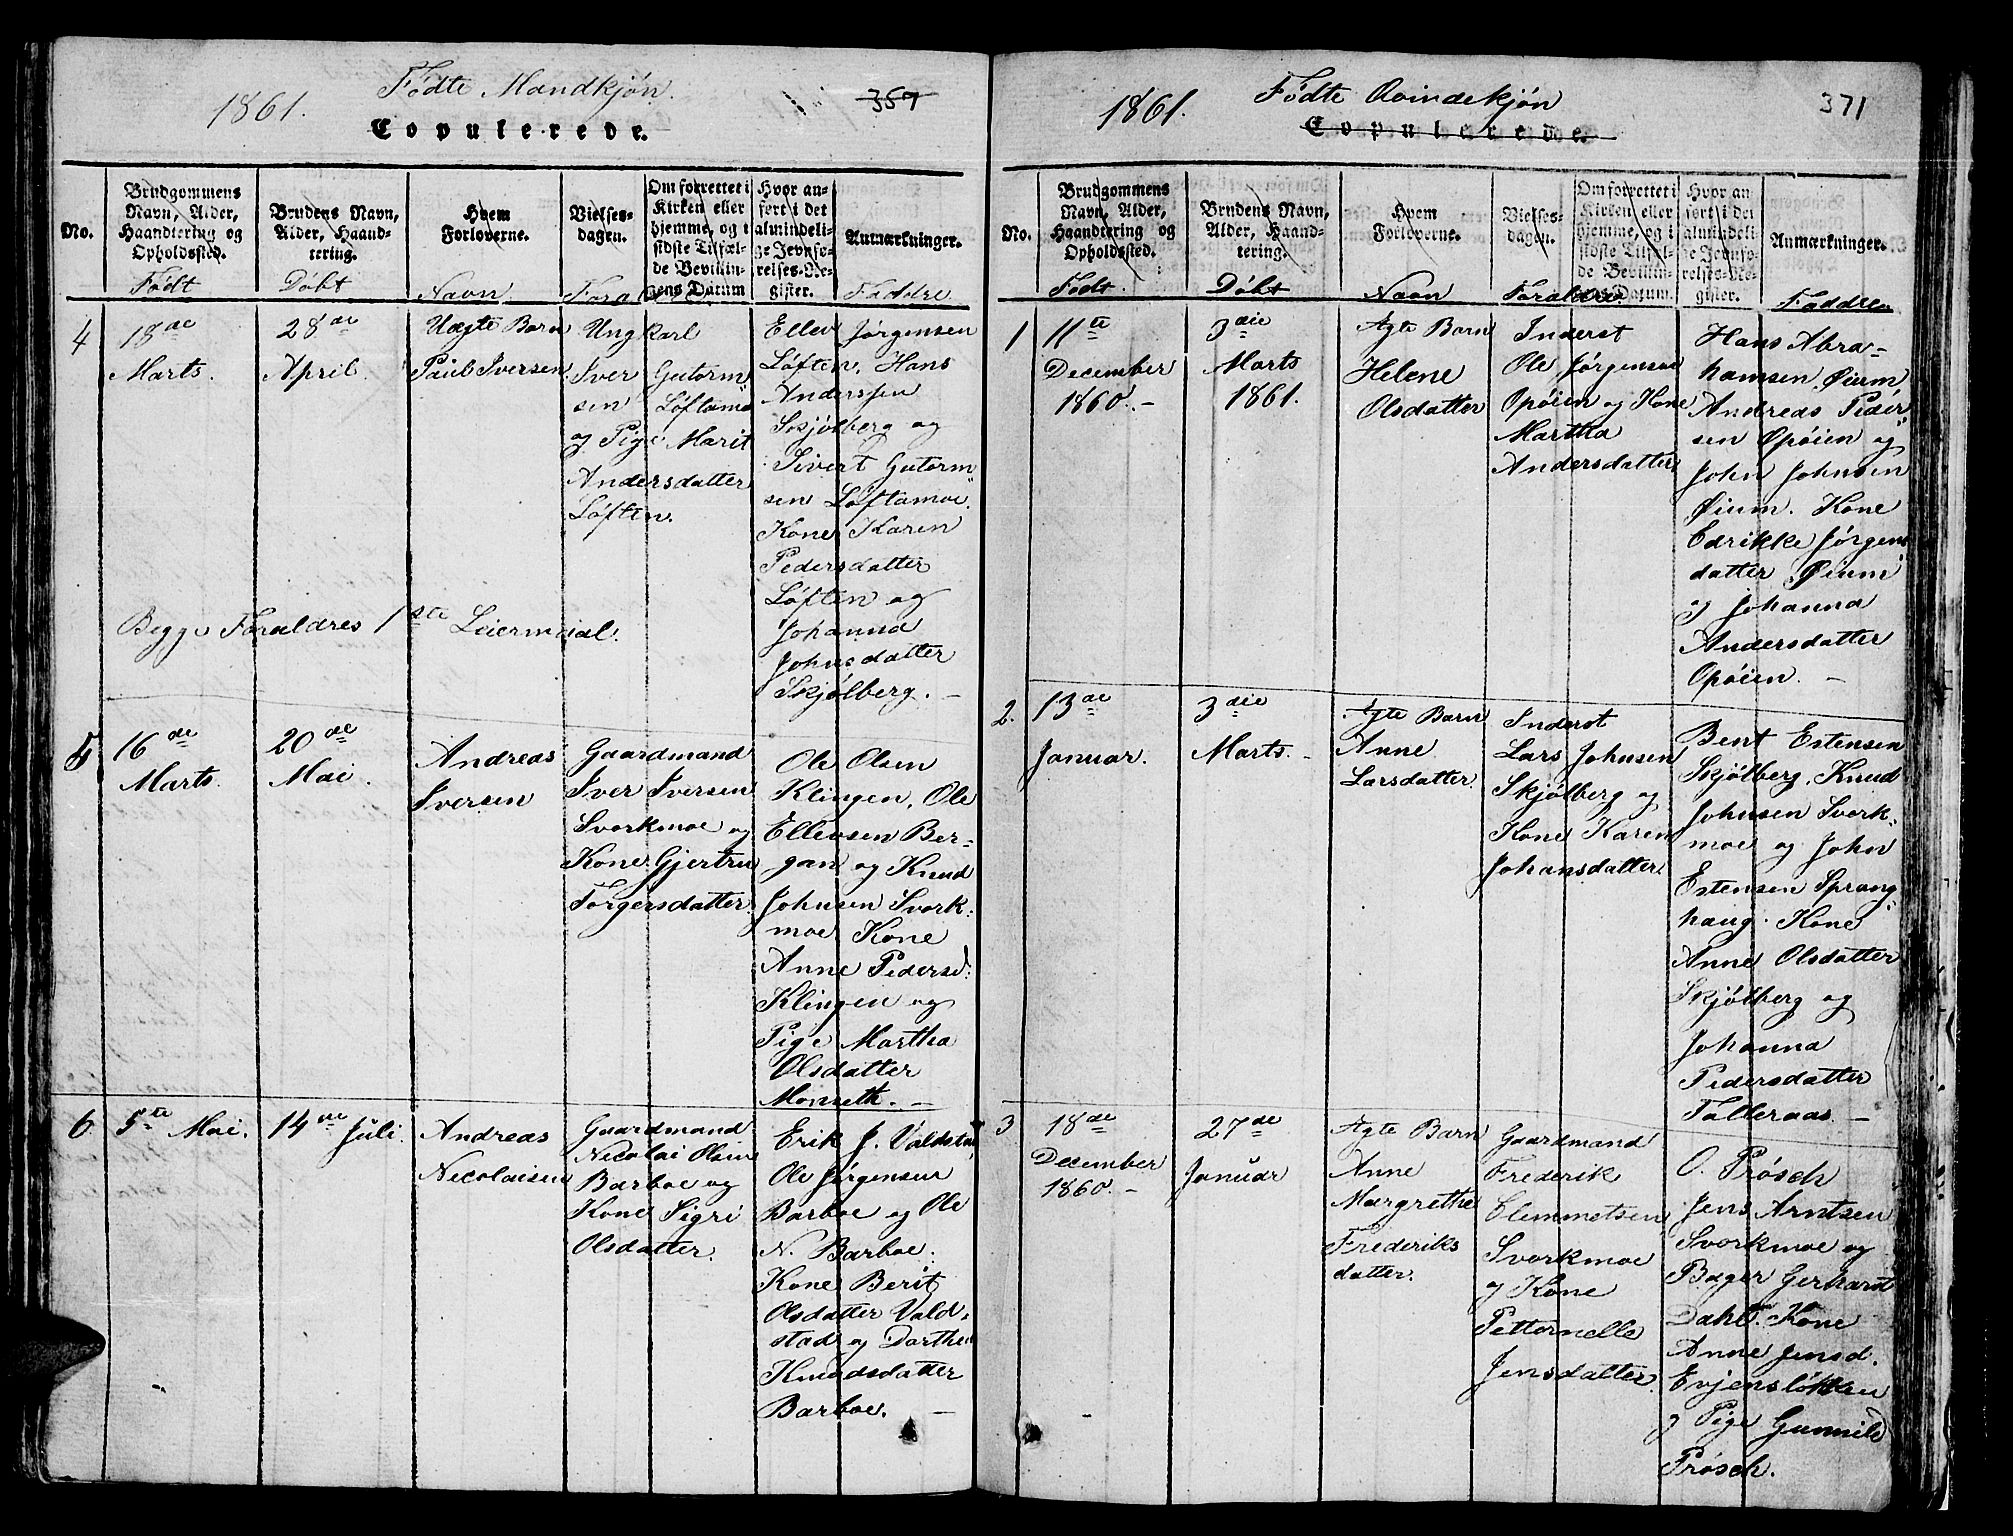 1861.
Fødte Mandkjøn.
357
Copulerede.
No.
Brudgommens
Navn, Alder,
Haandtering og
Opholdssted.
Født
Brudens Navn,
Alder, Haand-
tering.
Døbt
Hvem
Forloverne.
Navn
Vielses-
dagen.
Om forrettet i
Kirken eller
hjemme, og i
sidste Tilfæl-
de Bevillin-
gens Datum
Hvor an-
ført i det
almindeli-
ge Jevnfø-
relses-Re-
gister.
Anmærkninger.
Faddre
4
18de
Marts.
28de
April.
Uægte Barn
Paul Iversen
Ungkarl
Iver Gutorm
sen Løftamo
og Pige Marit
Andersdatter
Løften.
Ellev Jørgensen
Løften, Hans
Anderssen
Skjølberg og
Sivert Gutorm
sen Løftamoe.
Kone Karen
Pedersdatter
Løften og
Johanna
Johnsdatter
Skjølberg. -
Begge Foraldres 1ste Leiermaal.
5
16de
Marts.
20de
Mai.
Andreas
Iversen
Gaardmand
Iver Iversen
Svorkmoe og
Kone Gjertru
Torgersdatter.
Ole Olsen
Klingen, Ole
Ellevsen Ber-
gan og Knud
Johnsen Svork-
moe Kone
Anne Pedersd:
Klingen og
Pige Martha
Olsdatter
Monseth. -
6
5te Mai.
14de Juli.
Andreas
Nicolaisen
Gaardmand
Nicolai Olsen
Barboe og
Kone Sigri
Olsdatter.
Erik J. Valdstad
Ole Jørgensen
Barboe og Ole
N. Barboe.
Kone Berit
Olsdatter Vald-
stad og Dorthe
Knudsdatter
Barboe. -
1861.
Fødte Qvindekjøn
371
Copulerede.
No.
Brudgommens
Navn, Alder,
Haandtering og
Opholdssted.
Født.
Brudens Navn,
Alder, Haand-
tering.
Døbt
Hvem
Forloverne.
Navn
Vielses-
dagen.
Foraldre
Om forrettet i
Kirken eller
hjemme, og i
sidste Tilfæl-
de Bevillin-
gens Datum.
Hvor an-
ført i det
almindeli-
ge Jevnfø-
relses-Re-
gister.
Anmærkninger.
Faddre
1
11te
December
1860. -
3die
Marts
1861.
Ægte Barn
Helene
Olsdatter
Inderst
Ole Jørgensen
Opøien og Kone
Martha
Andersdatter
Hans Abra-
hamsen Øium,
Andreas Peder
sen Opøien og
John Johnsen
Øium. Kone
Edrikke Jørgens
datter Øium
og Johanna
Andersdatter
Opøien. -
2.
13de
Januar.
3die
Marts. -
Ægte Barn
Anne
Larsdatter
Inderst
Lars Johnsen
Skjølberg og
Kone Karen
Johansdatter
Bent Estensen
Skjølberg, Knud
Johnsen Svork-
moe og John
Estensen Sprang-
haug. Kone
Anne Olsdatter
Skjølberg og
Johanna
Pedersdatter
Solleraas. -
3
18de
December
1860. -
27de
Januar
Ægte Barn
Anne
Margrethe
Frederiks
datter.
Gaardmand
Frederik
Clemmetsen
Svorkmoe
og Kone
Petternelle
Jensdatter.
O. Prøsch
Jens Arntsen
Svorkmoe og
Bager Gerhard
Dahl. Kone
Anne Jensd.
Evjensløkken
og Pige Gunnild
Prøsch.